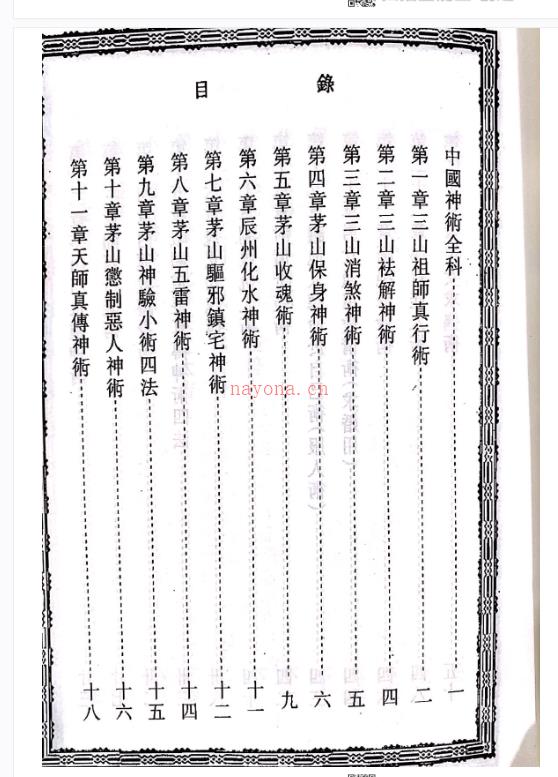 目錄
中國神術全科 一
第一章三山祖師真行術 二
第二章三山祛解神術 四
第三章三山消煞神術 五
第四章茅山保身神術 六
第五章茅山收魂術 九
第六章辰州化水神術 十一
第七章茅山驅邪鎮宅神術 十二
第八章茅山五雷神術 十四
第九章茅山神驗小術四法 十五
第十章茅山懲制惡人神術 十六
第十一章天師真傳神術 十八
nayona.cn